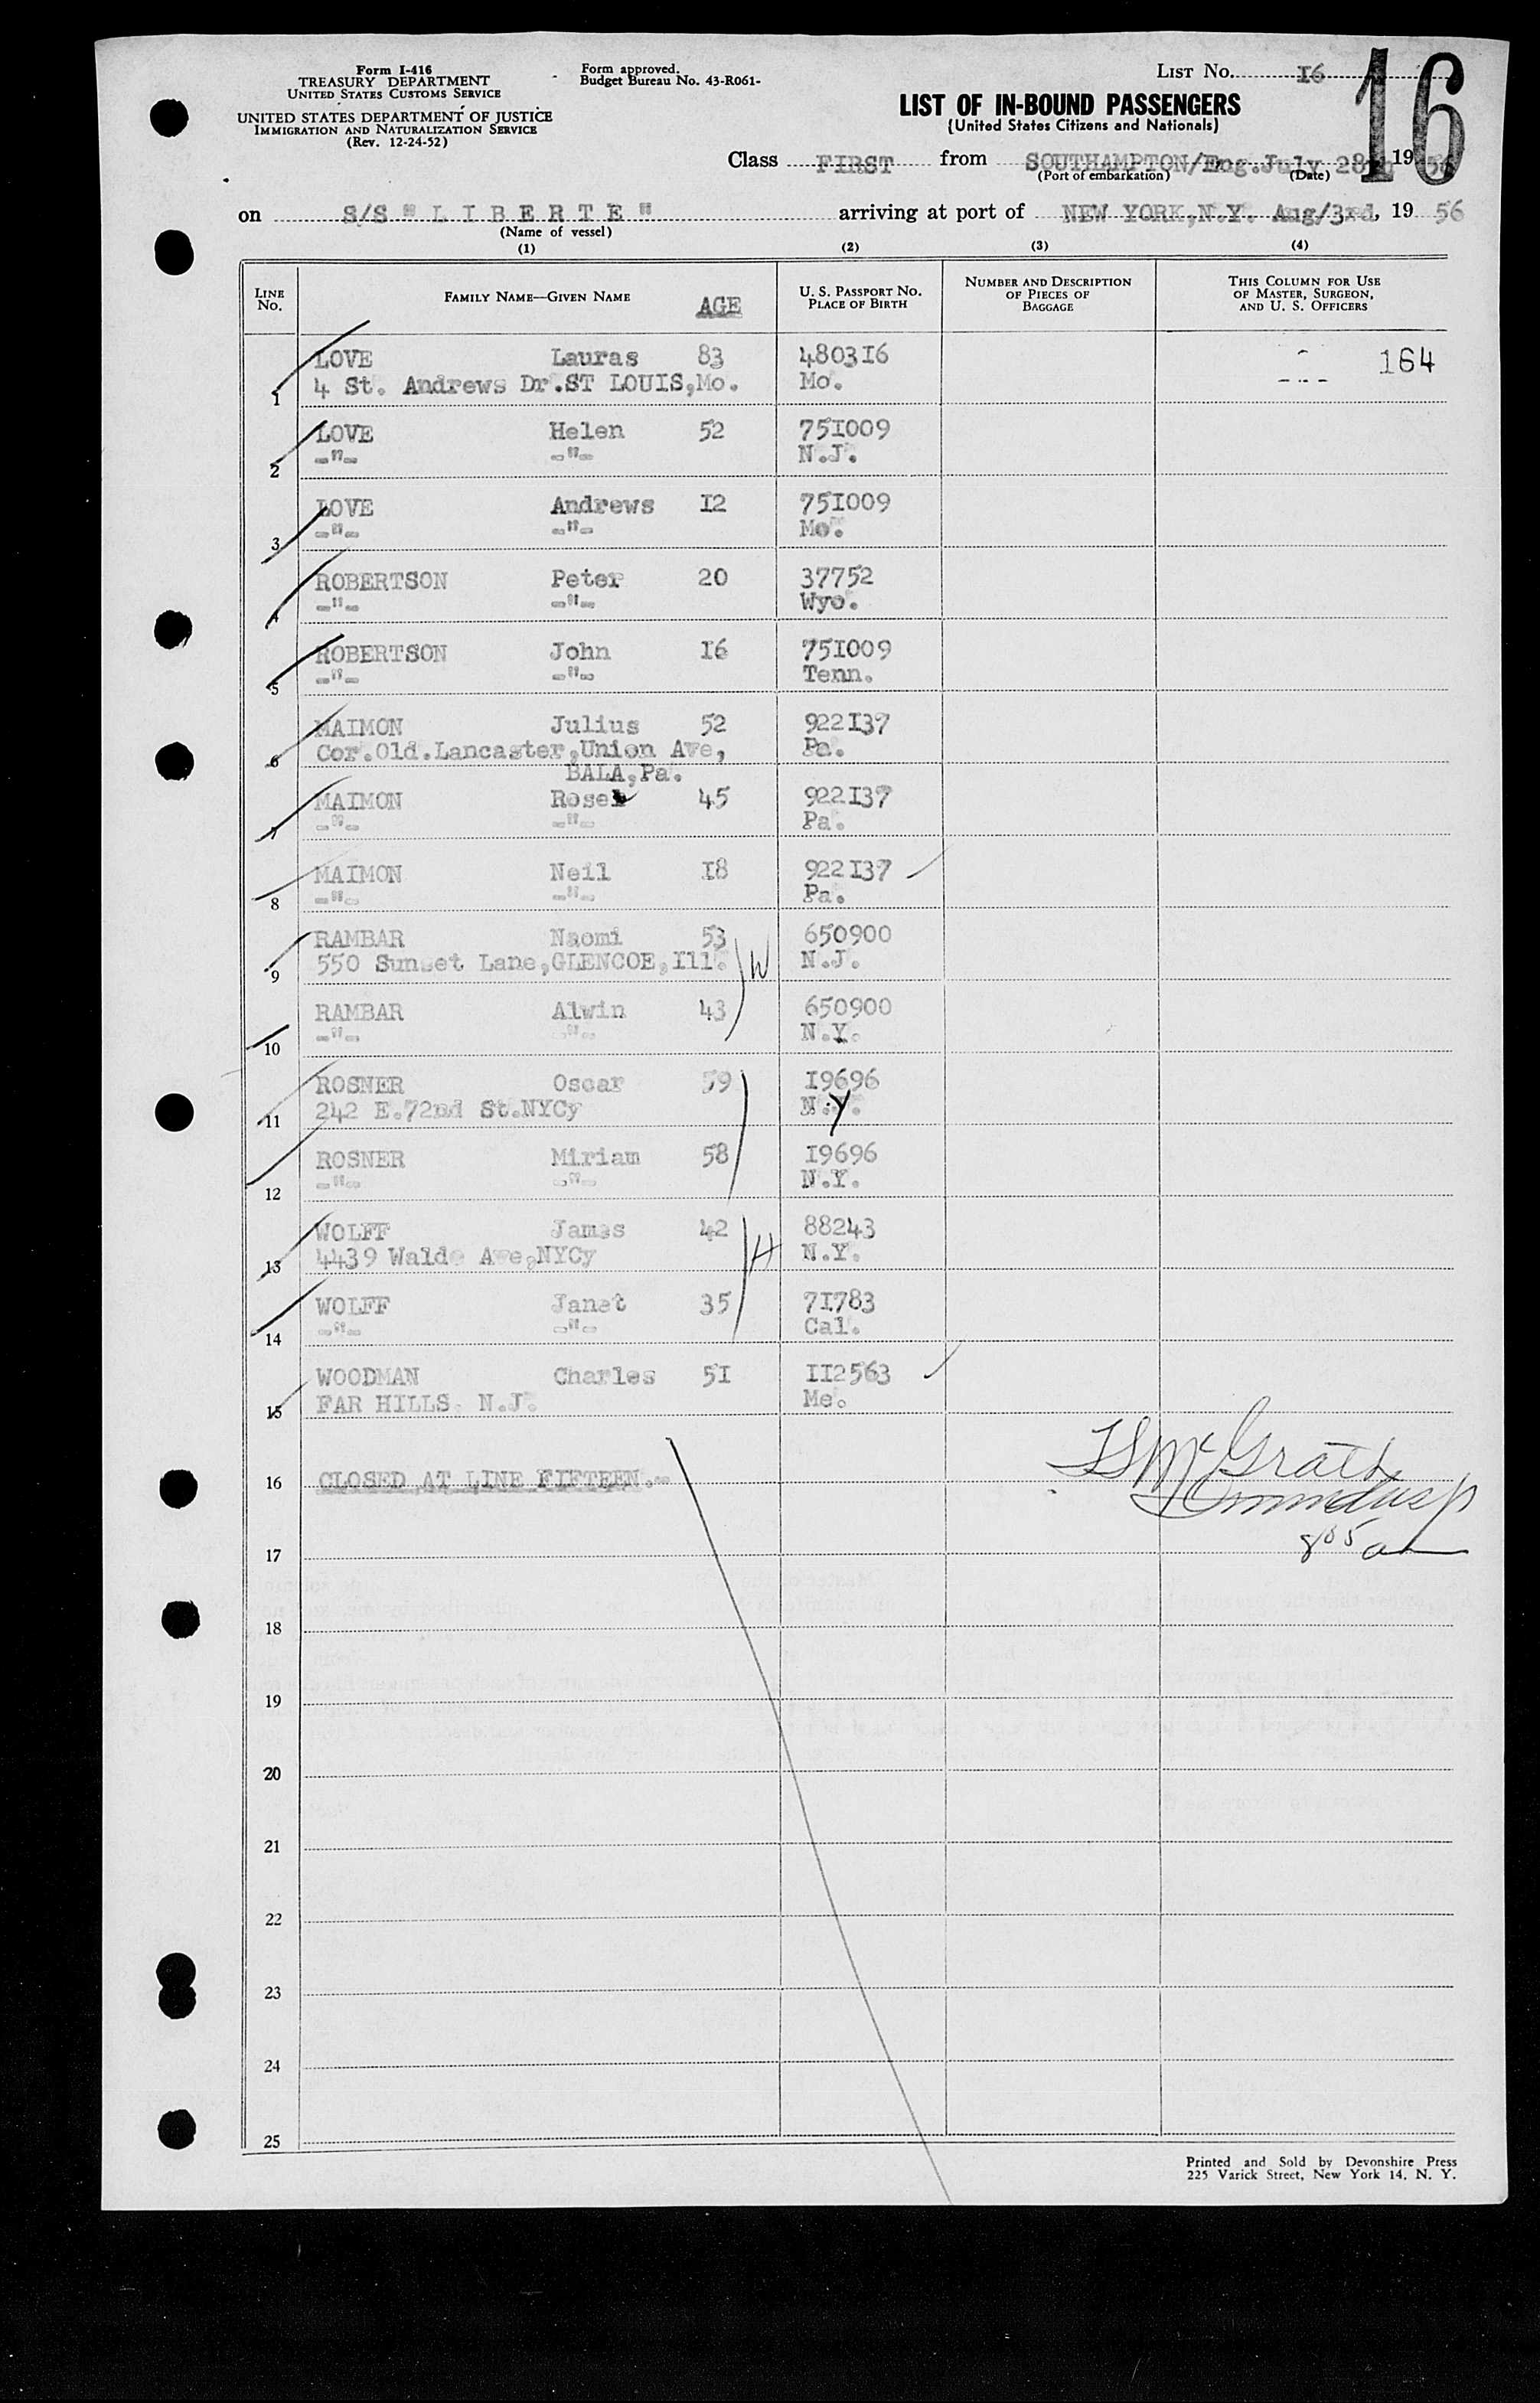 Form I-416
TREASURY DEPARTMENT
UNITED STATES CUSTOMS SERVICE
UNITED STATES DEPARTMENT OF JUSTICE
IMMIGRATION AND NATURALIZATION SERVICE
(Rev. 12-24-52)
Form approved.
Budget Bureau No. 43-R061-
LIST No. 16
16
LIST OF IN-BOUND PASSENGERS
(United States Citizens and Nationals)
Class FIRST from SOUTHAMPTON/Eng. July 28th 19 56
(Port of embarkation) (Date)
on S/S "L I B E R T E" arriving at port of NEW YORK,N.Y. Aug/3rd, 19 56
(Name of vessel)
(1) (2) (3) (4)
LINE No. FAMILY NAME—GIVEN NAME AGE U. S. PASSPORT NO. PLACE OF BIRTH NUMBER AND DESCRIPTION OF PIECES OF BAGGAGE THIS COLUMN FOR USE OF MASTER, SURGEON, AND U. S. OFFICERS
LOVE Lauras 83 480316 164
1 4 St. Andrews Dr.ST LOUIS,Mo. Mo.
LOVE Helen 52 751009
2 -"- -"- N.J.
LOVE Andrews 12 751009
3 -"- -"- Mo.
ROBERTSON Peter 20 37752
4 -"- -"- Wyo.
ROBERTSON John 16 751009
5 -"- -"- Tenn.
MAIMON Julius 52 922137
6 Cor.Old.Lancaster,Union Ave, Pa.
BALA,Pa.
MAIMON Rose 45 922137
7 -"- -"- Pa.
MAIMON Neil 18 922137
8 -"- -"- Pa.
RAMBAR Naomi 53 650900
9 550 Sunset Lane,GLENCOE,Ill. W N.J.
RAMBAR Alwin 43 650900
10 -"- -"- N.Y.
ROSNER Oscar 59 19696
11 242 E.72nd St.NYCy N.Y.
ROSNER Miriam 58 19696
12 -"- -"- N.Y.
WOLFF James 42 88243
13 4439 Waldo Ave,NYCy H N.Y.
WOLFF Janet 35 71783
14 -"- -"- Cal.
WOODMAN Charles 51 112563
15 FAR HILLS. N.J. Me.
16 CLOSED AT LINE FIFTEEN.-
McGrath
Imm Insp
8 05 am
17
18
19
20
21
22
23
24
25
Printed and Sold by Devonshire Press
225 Varick Street, New York 14, N. Y.